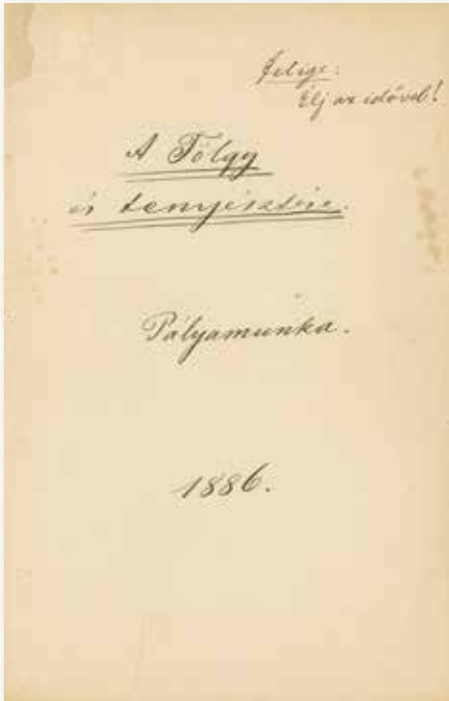 Jelige:
Élj az idővel!
A Tölgy
és tenyésztése.
Pályamunka.
1886.